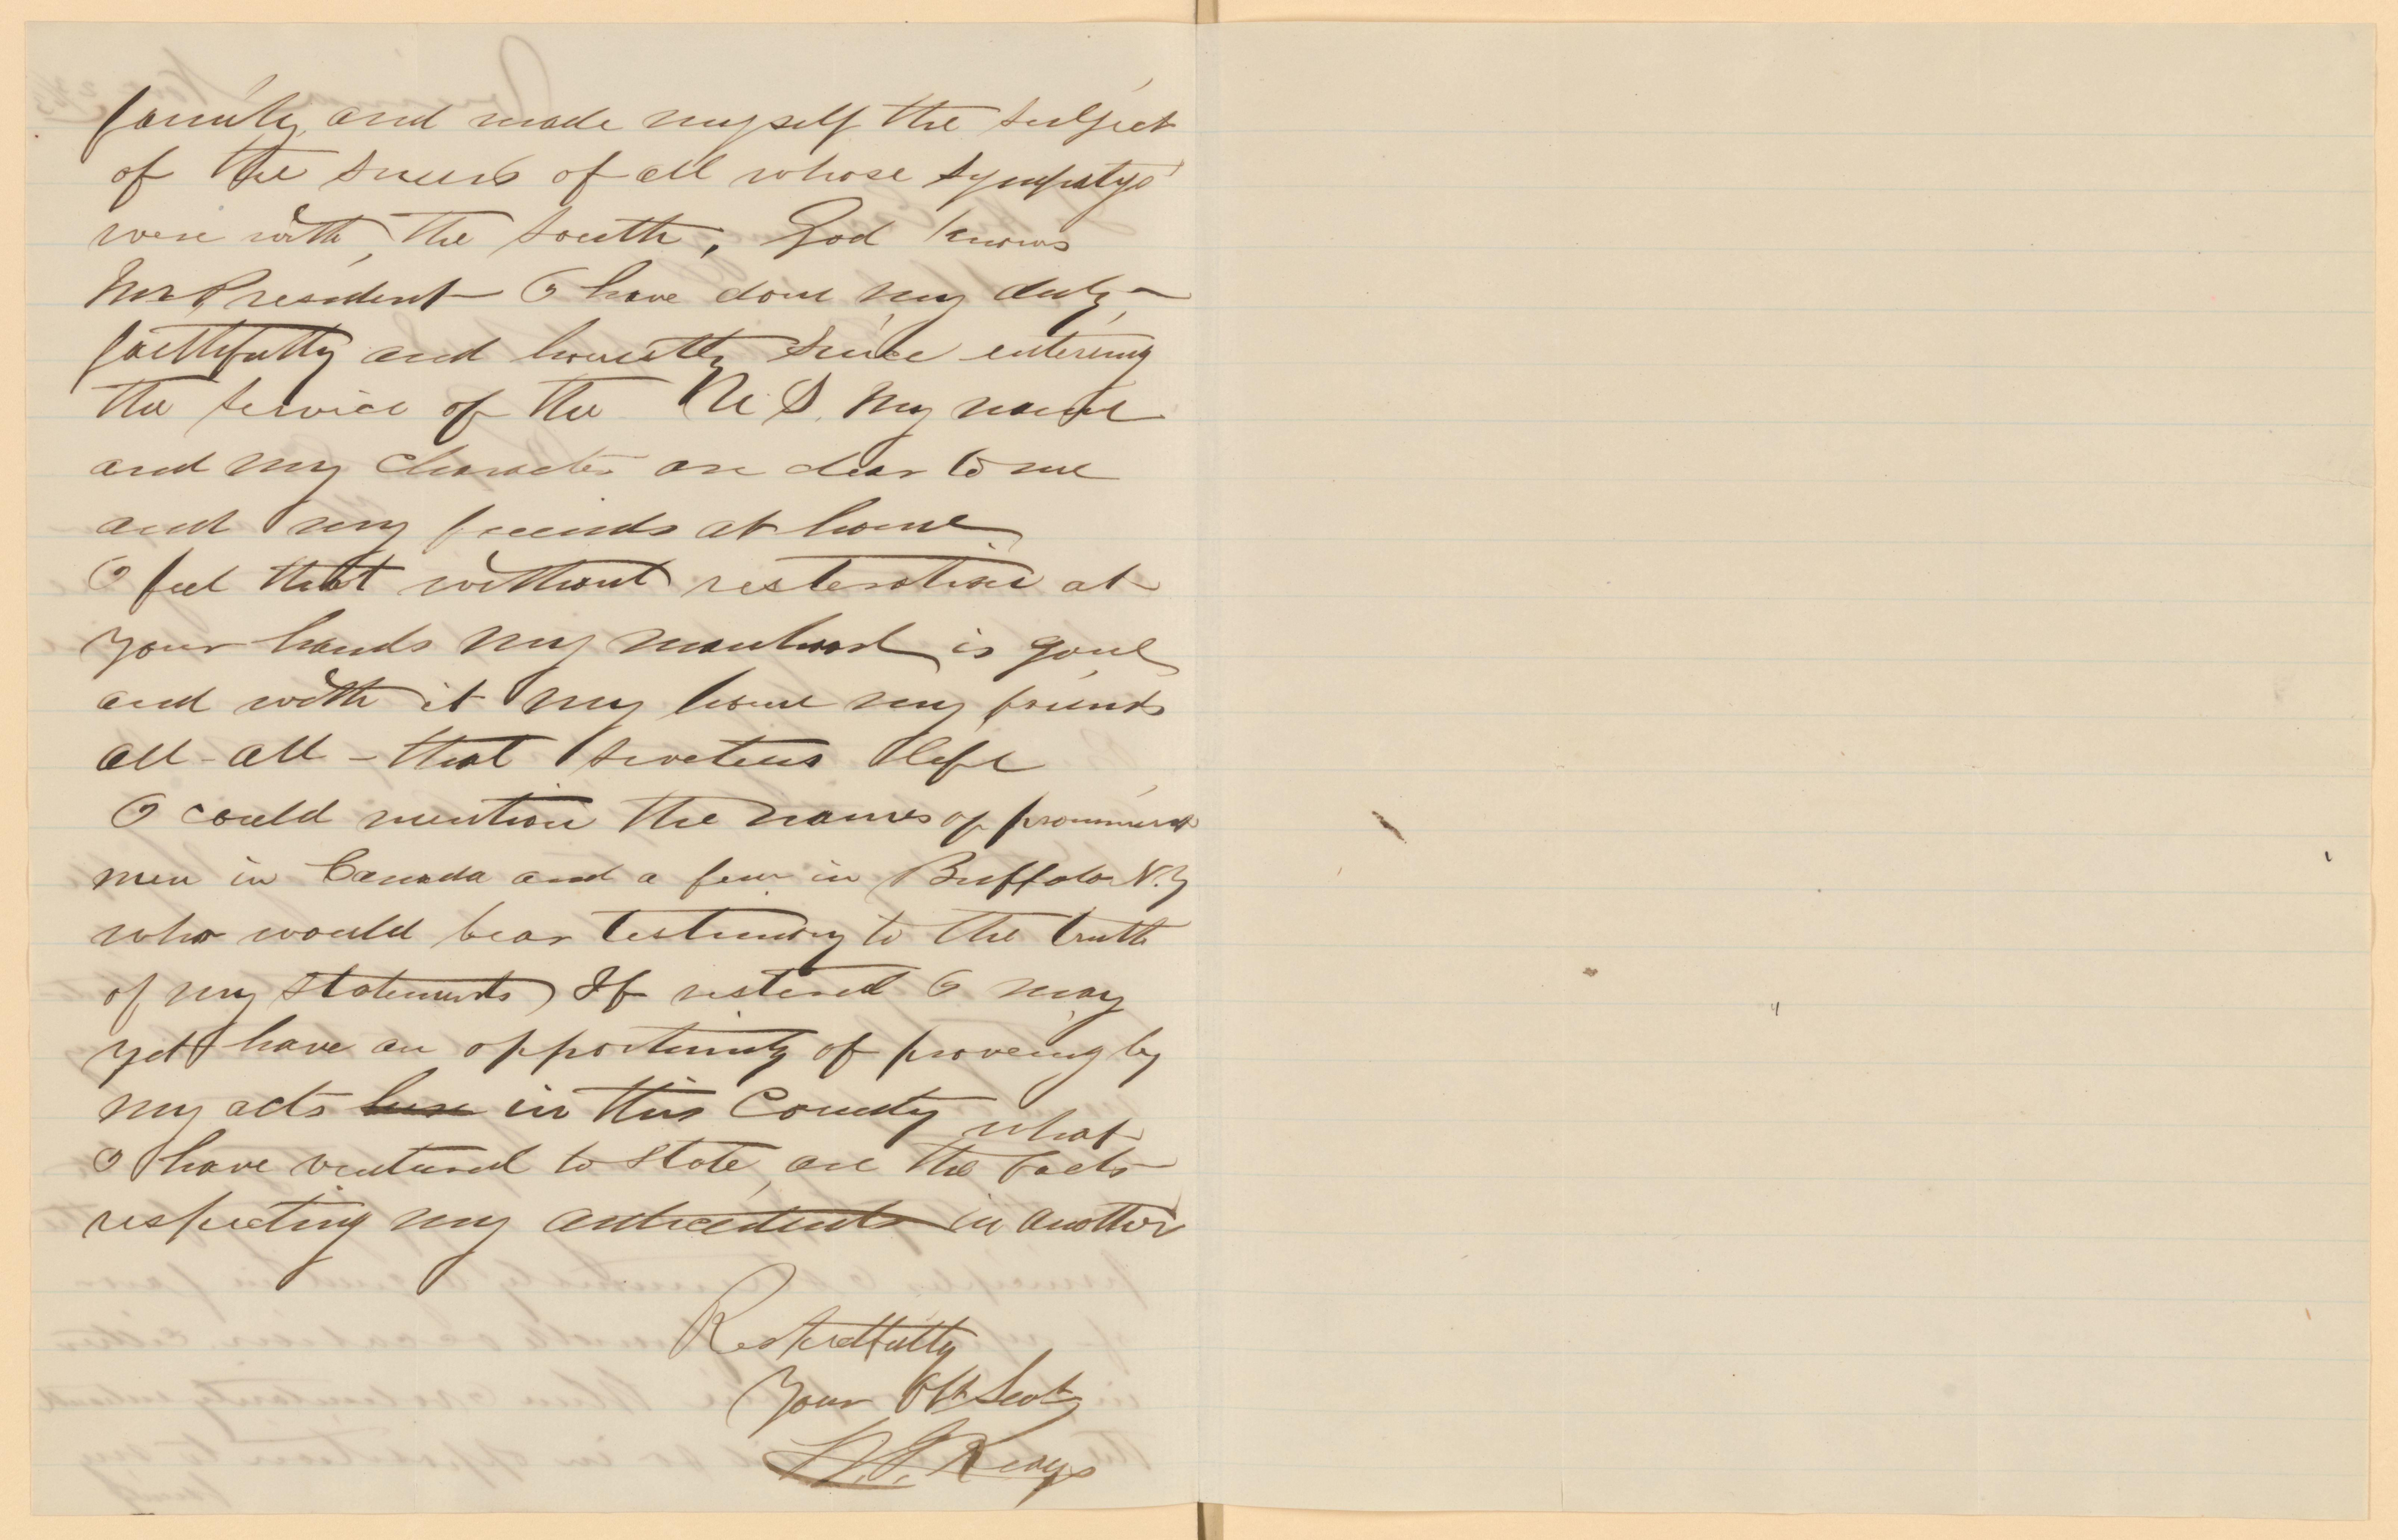 family, and made myself the subject
of the sneers of all whose sympatys
were with, the South, God knows
Mr President I have done my duty
faithfully and honestly since entering
the service of the U. S. My name
and my character are dear to me
and my friends at home
I feel that without restoration at
your hands my manhood is gone
and with it my home my friends
all - all - that sweetens life
I could mention the names of prominent
men in Canada and a few in Buffalo N.Y
who would bear testimony to the truth
of my statements) If restored I may
yet have an opportunity of proveing by
my acts here in this County what
I have ventured to state, are the facts
respecting my antecedents in another
Respectfully
Your Obt Servt
Keays